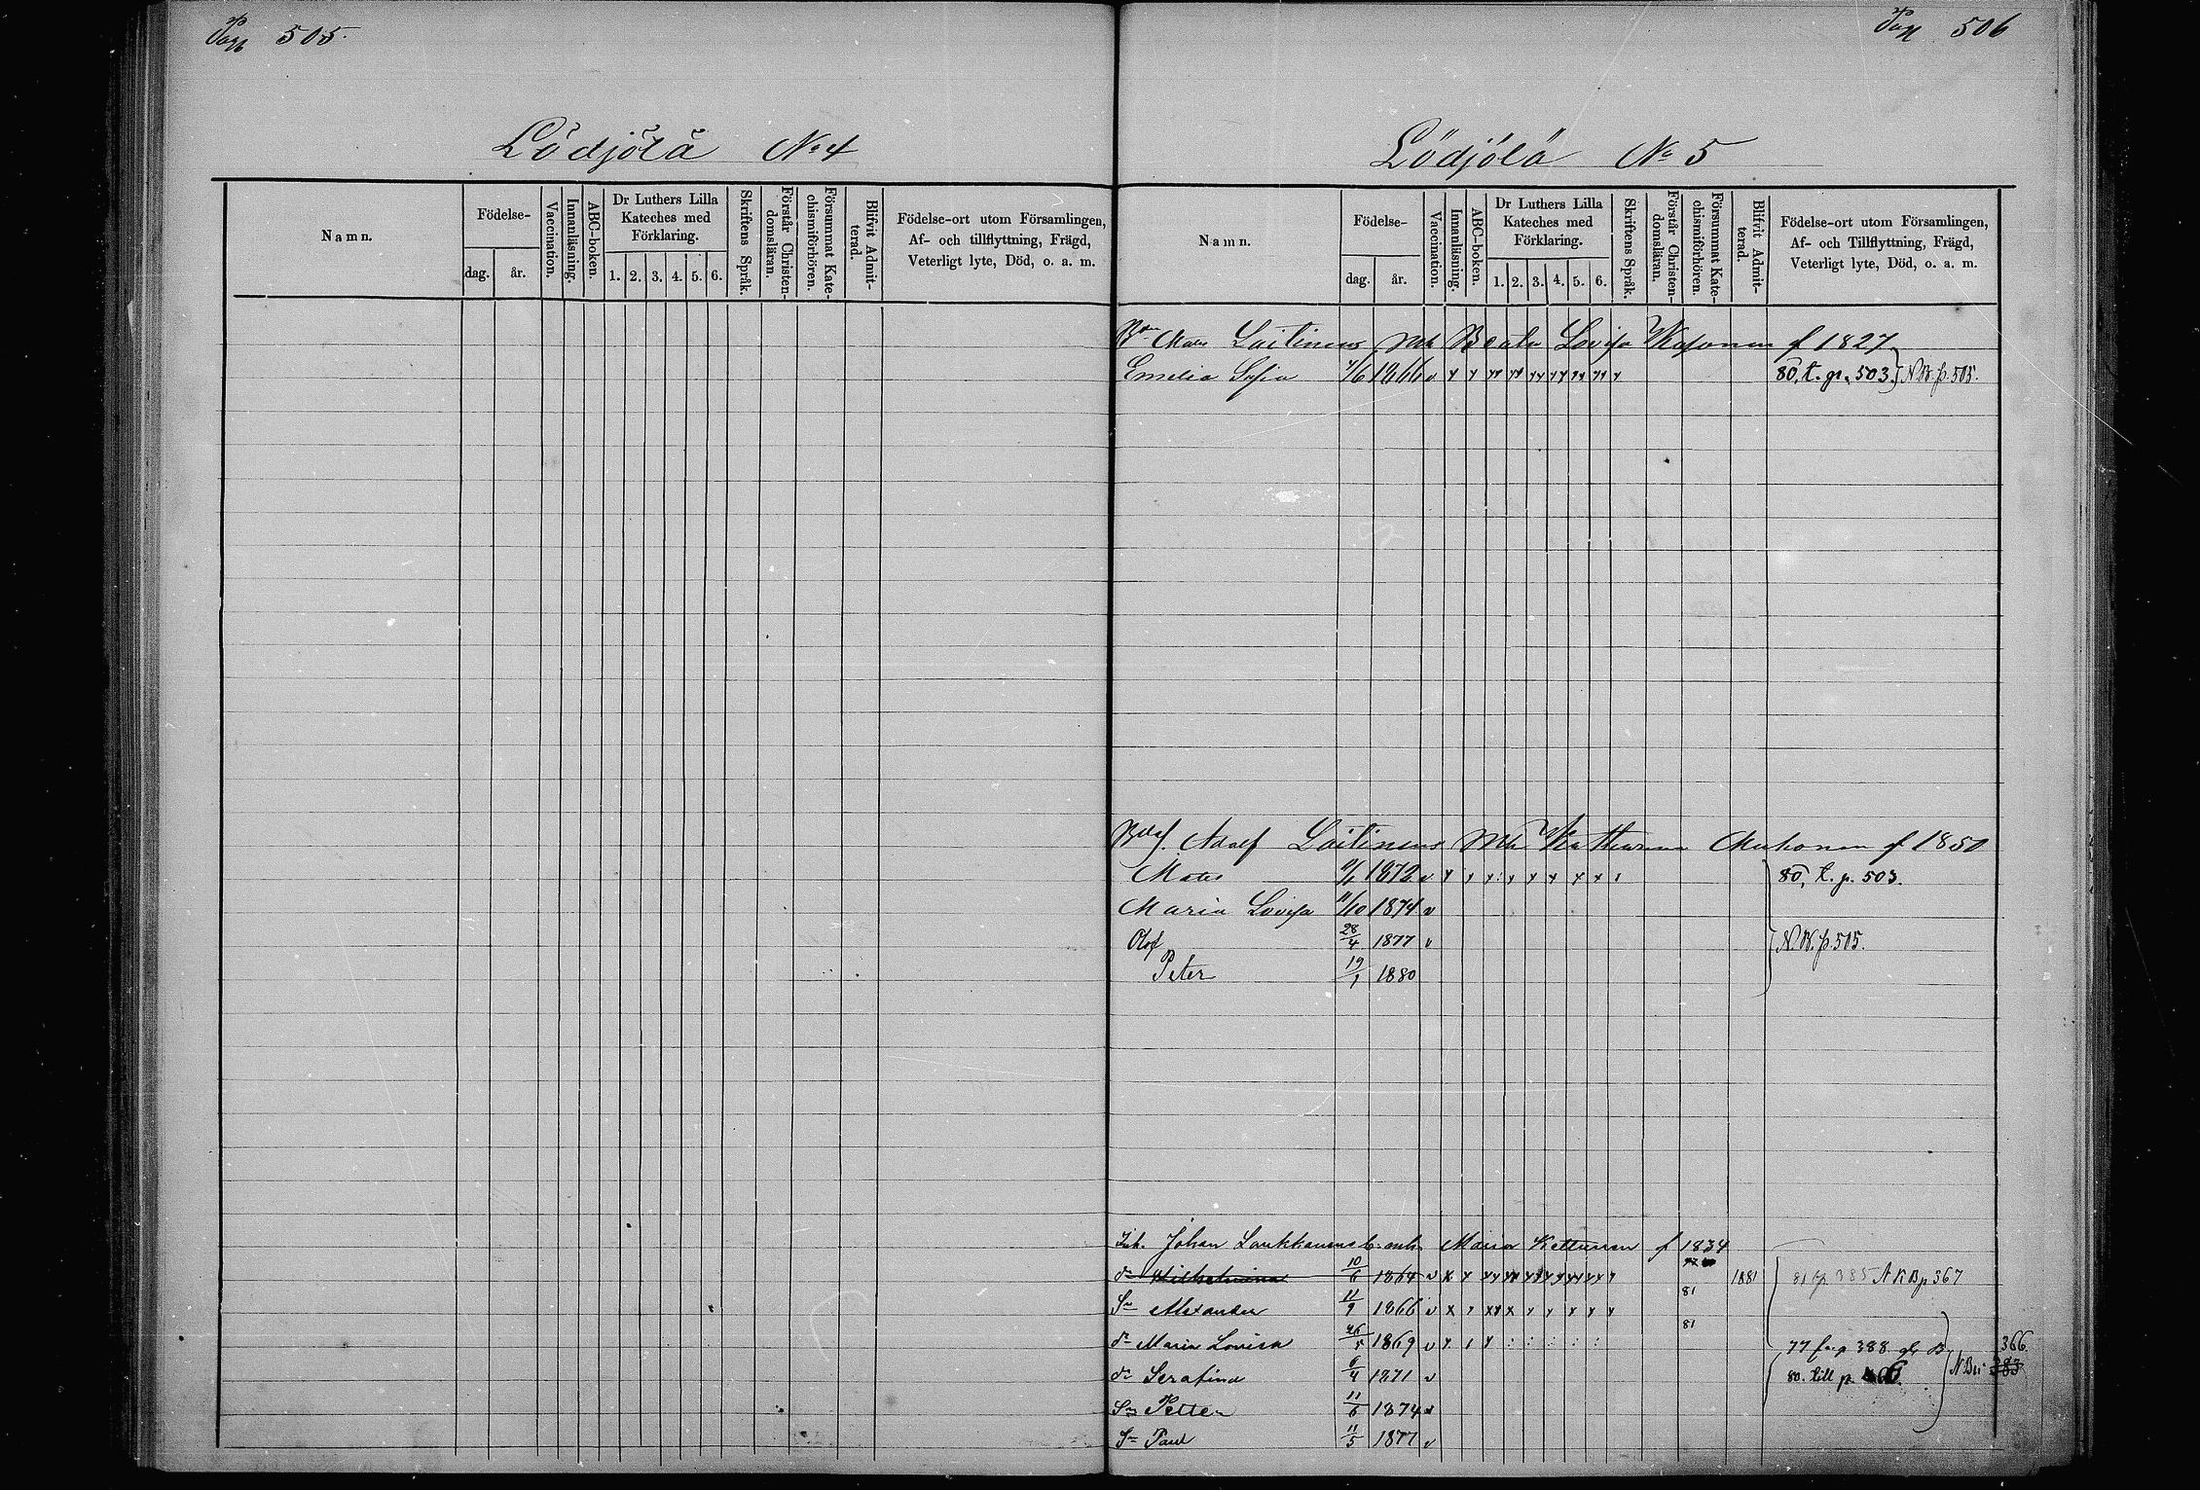 Pag 505.
Lödjölä No 4
Namn.
Födelse-
dag. år.
Vaccination.
Innanläsning.
ABC-boken.
Dr Luthers Lilla Kateches med Förklaring.
1. 2. 3. 4. 5. 6.
Skriftens Språk.
Förstår Christendomsläran.
Försummat Katechismiförhören.
Blifvit Admitterad.
Födelse-ort utom Församlingen,
Af- och tillflyttning, Frägd,
Veterligt lyte, Död, o. a. m.
Pag 506
Lödjölä No 5
Namn.
Födelse-
dag. år.
Vaccination.
Innanläsning.
ABC-boken.
Dr Luthers Lilla Kateches med Förklaring.
1. 2. 3. 4. 5. 6.
Skriftens Språk.
Förstår Christendomsläran.
Försummat Katechismiförhören.
Blifvit Admitterad.
Födelse-ort utom Församlingen,
Af- och Tillflyttning, Frägd,
Veterligt lyte, Död, o. a. m.
Mats Laitinens Beata Lovisa f 1827
Emelia Sofia 1866 v 80, t. p. 503. N.B. p. 505.
Adolf Laitinens Katharina Muhonen f 1850
Mats 1872 v 80, t. p. 503.
Maria Lovisa 11/10 1874 v
Olof 28/4 1877 v N.B. p. 505.
Peter 19/1 1880
Inh. Johan Laukkanens Maria Kettunen f 1834
dr Wilhelmina 10/6 1864 v 1881 81 t p 385 A K B p 367
Sn Alexander 11/9 1866 v 81
dr Maria Lovisa 1869 v 81 77 fr p 388 366
dr Serafina 6/4 1871 v 80. till p. 383
Sn Petter 11/6 1874 v
Sn Paul 11/5 1877 v